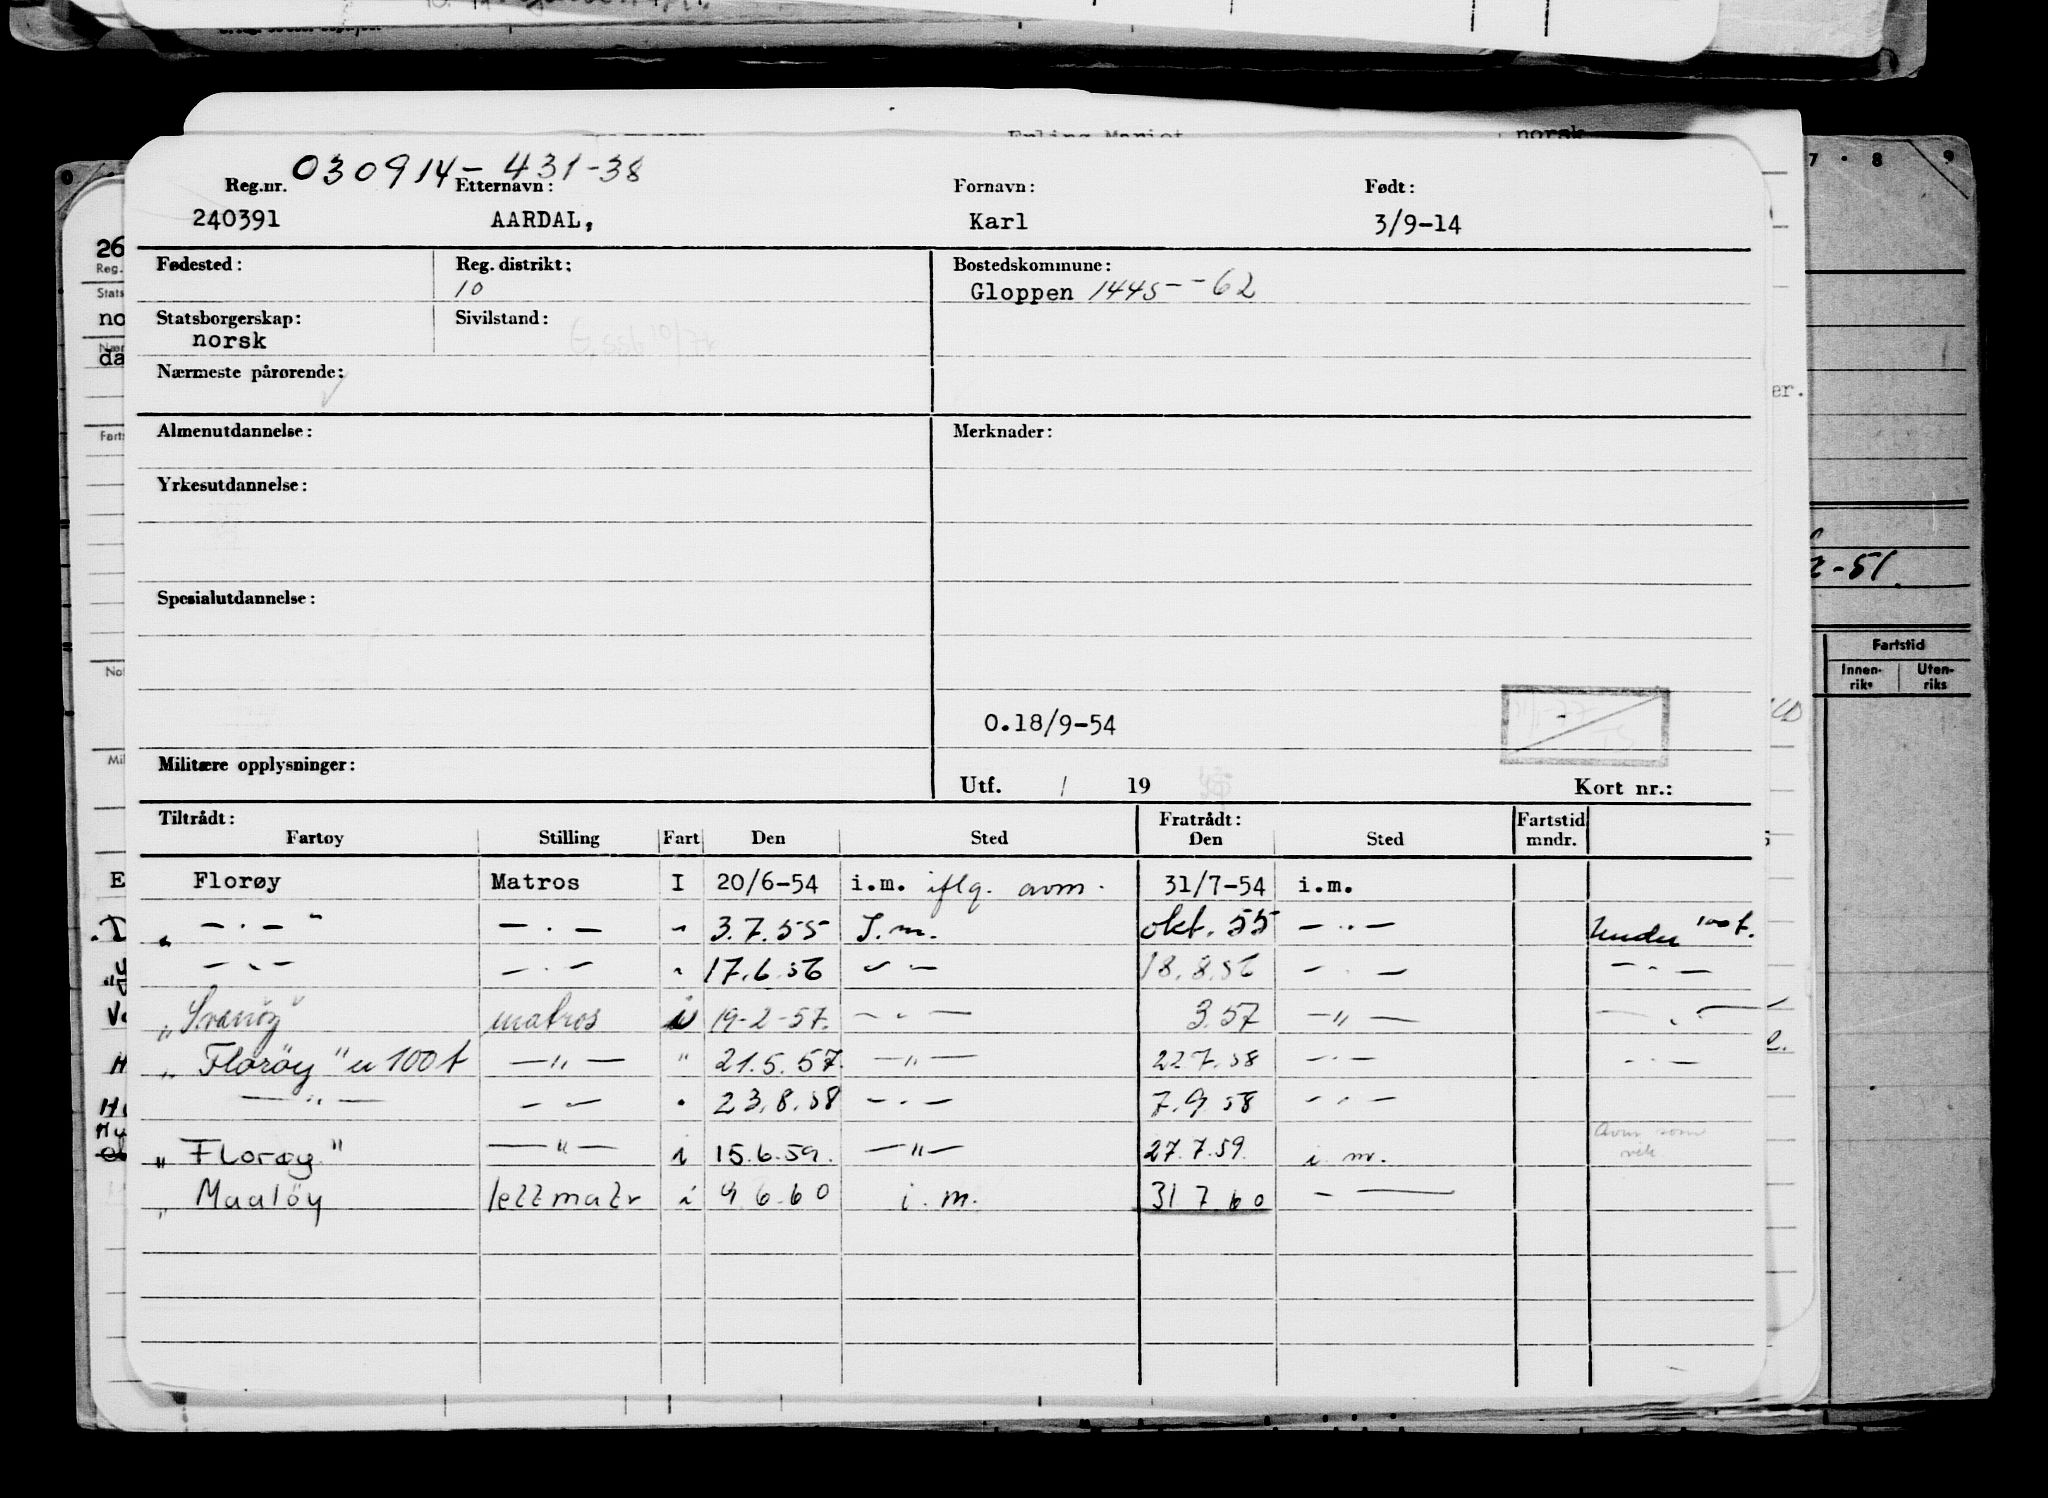 Erling Marjot norsk
030914-431-38
Reg.nr. Etternavn: Fornavn: Født:
240391 AARDAL, Karl 3/9-14
Fødested: Reg. distrikt: Bostedskommune:
10 Gloppen 1445--62
Statsborgerskap: Sivilstand:
norsk
Nærmeste pårørende:
Almenutdannelse: Merknader:
Yrkesutdannelse:
Spesialutdannelse:
0.18/9-54
Militære opplysninger:
Utf. / 19 Kort nr.:
Tiltrådt: Fratrådt: Fartstid
Fartøy Stilling Fart Den Sted Den Sted mndr.
Florøy Matros I 20/6-54 i.m. iflg. avm. 31/7-54 i.m.
„ — . — " — . — " 3.7.55 I.m. okt. 55 — . — Under 100 t.
— . — — . — " 17.6.56 — — 18.8.56 — . — — . —
„ Svanöy" matros i 19-2-57. — . — 3.57 — „ — — . —
„ Floröy" u 100 t — „ — " 21.5.57. — „ — 22.7.58 — . — — . —
— „ — — — " 23.8.58 — . — 7.9.58 — . —
„ Florøy" — „ — i 15.6.59. — „ — 27.7.59. i m. Avm som
„ Maalöy lettmatr i 9 6.60 i. m. 31 7.60 — —
2-51.
Fartstid
Innen-riks Uten-riks